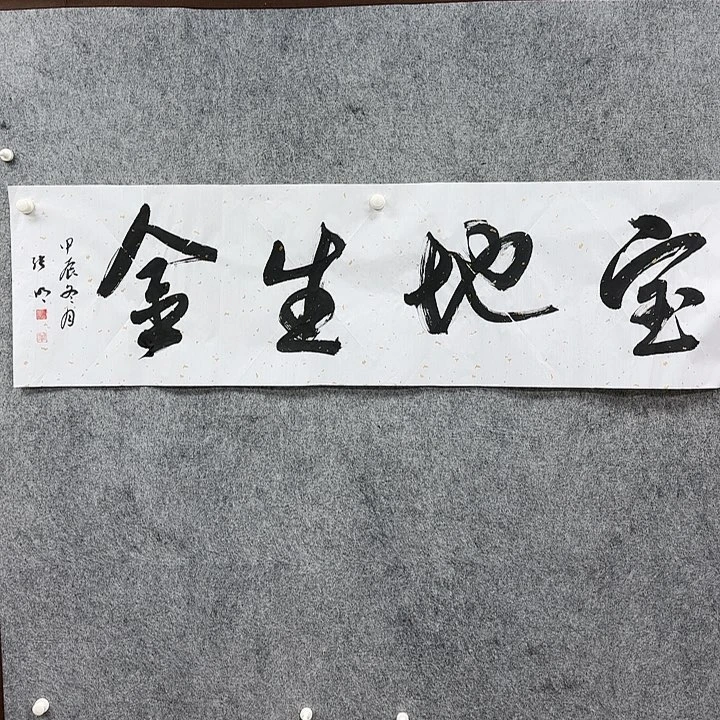 宝地生金
甲辰冬月
张明